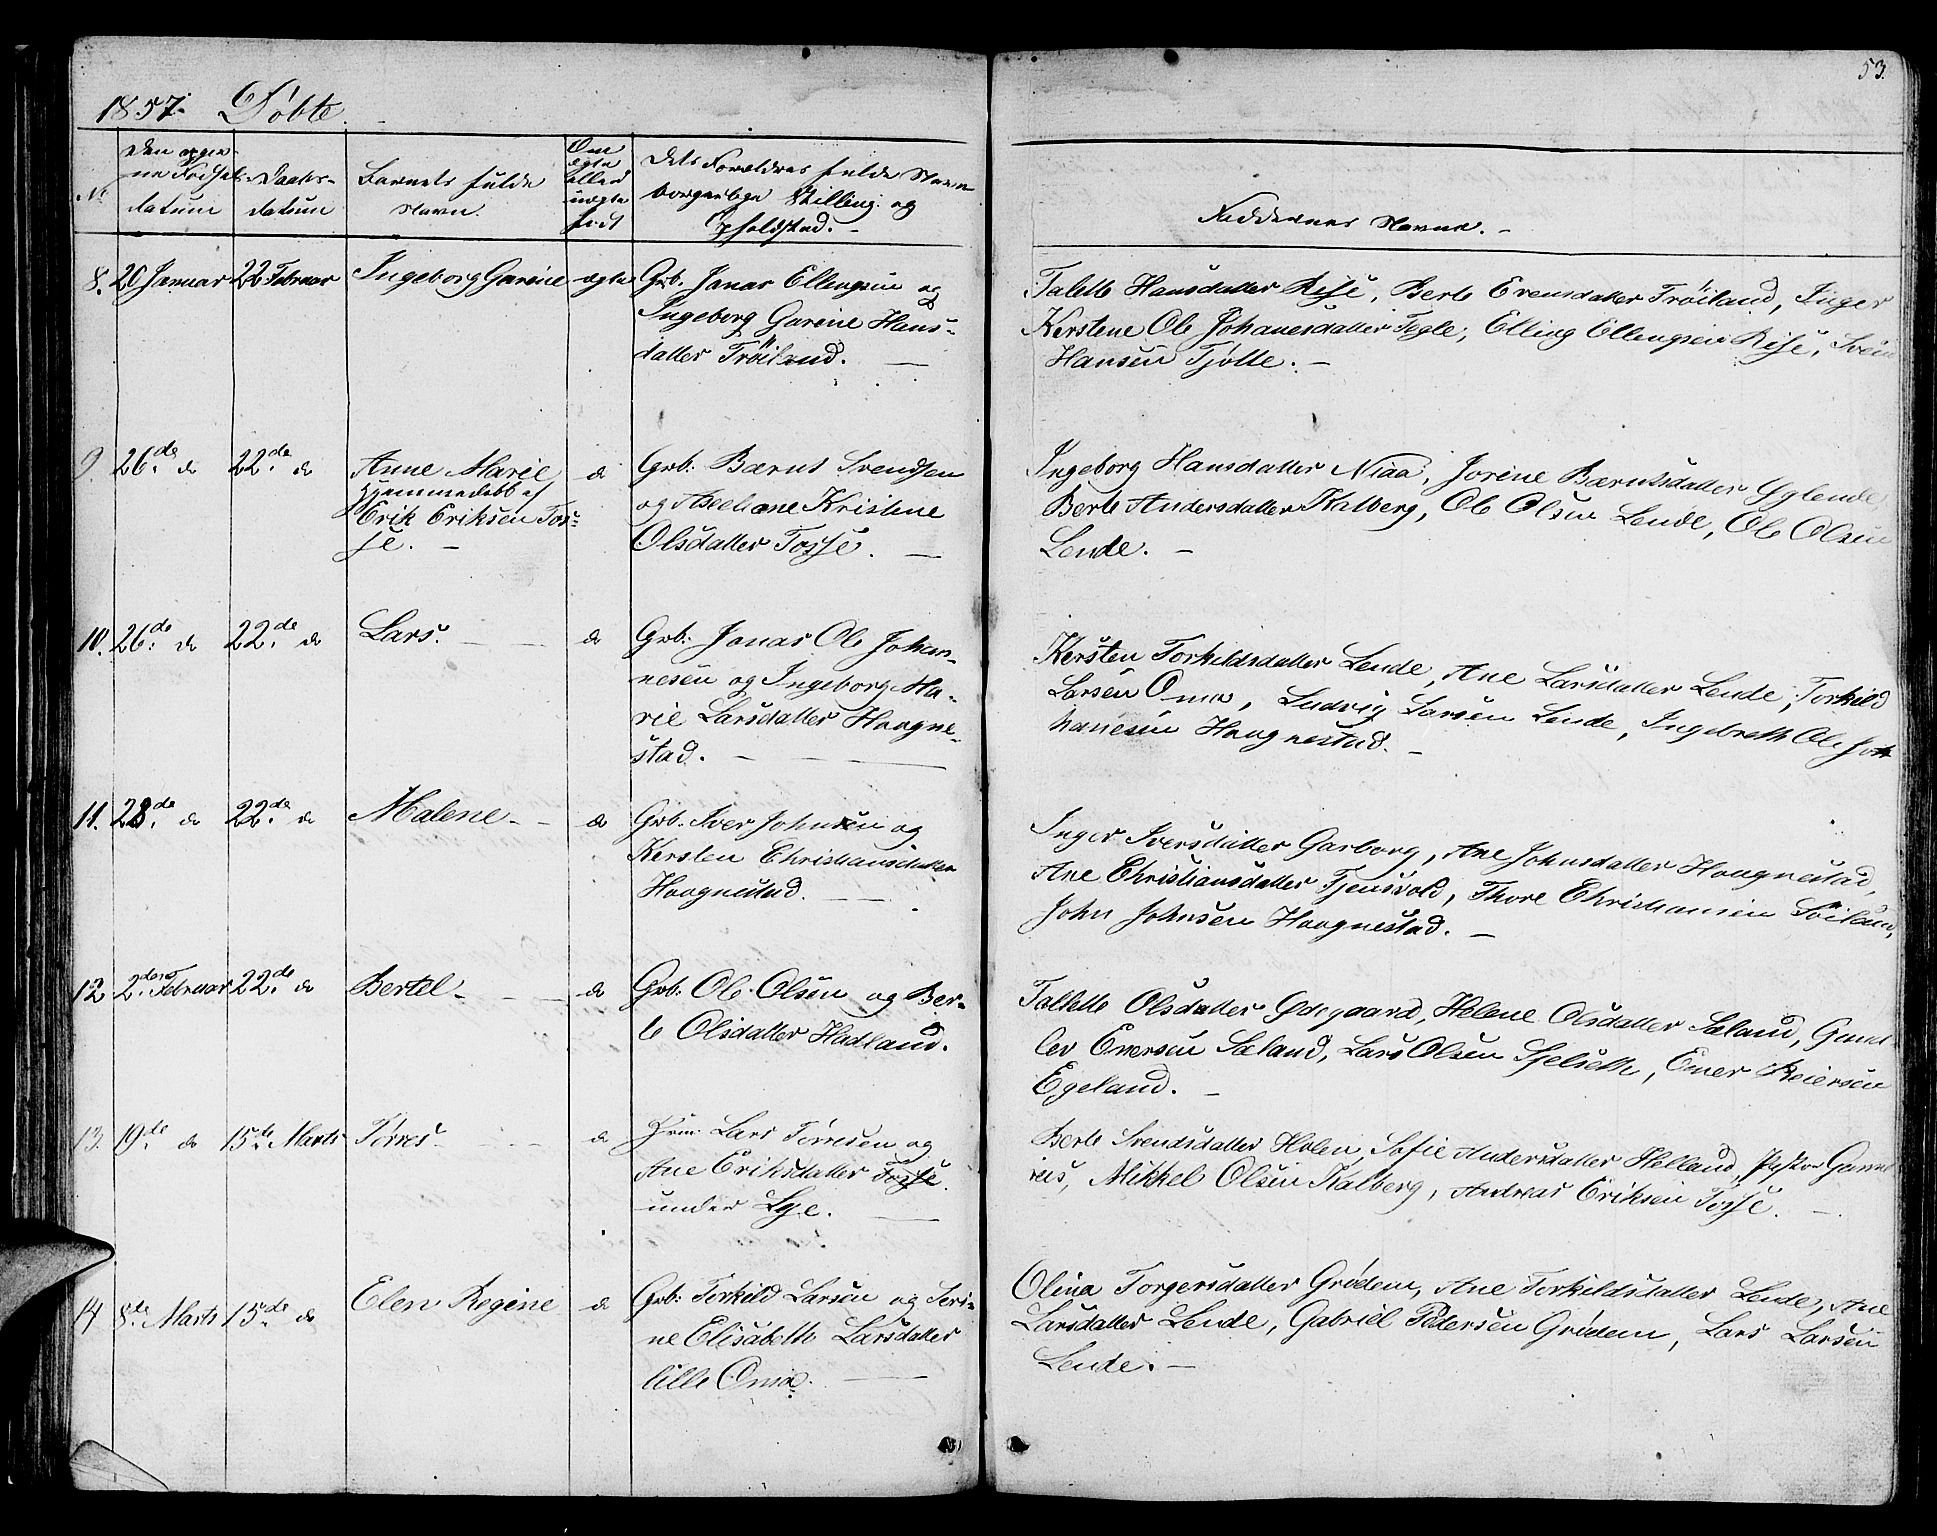 53.
1857. Döbte.
No
Den opgiv-
ne Fødsels-
datum
Daabs-
datum
Barnets fulde
Navn.
Om
ægte
eller
uægte
født
Dets Forældres fulde Navn
borgerlige Stilling og
Opholdsted. -
Faddernes Navne. -
8. 20 Januar 22 Februar Ingeborg Gurine ægte Grb. Jonas Ellengsen og
Ingeborg Gurine Hans-
datter Tröiland. -
Talette Hansdatter Rise, Berte Evensdatter Tröiland, Inger
Kerstene Ole Johanesdatter Tegle, Elling Ellengsen Rise, Svend
Hansen Tjøtte. -
9. 26de do 22de do Anne Marie do Grb. Bærnt Svendsen
Hjemmedøbt af
Erik Eriksen Tos-
se. -
og Aseliane Kristine
Olsdatter Tosse. -
Ingeborg Hansdatter Niaa, Jorine Bærntsdatter Yglende
Berte Andersdatter Kalberg, Ole Olsen Lende, Ole Olsen
Lende. -
10. 26de do 22de do Lars. do Grb. Jonas Ole Johan-
nesen og Ingeborg Ma-
rie Larsdatter Haagne-
stad. -
Kersten Torkildsdatter Lende, Ane Larsdatter Lende, Torkild
Larsen Oma, Ludvig Larsen Lende, Ingebreth Ole Joh
hanesen Haagnestad. -
11. 28de do 22de do Malene - do Grb. Iver Johnsen og
Kersten Christiansdatter
Haagnestad. -
Inger Iversdatter Garborg, Ane Johnsdatter Haagnestad,
Ane Christiansdatter Tjensvold, Thore Christiansen Söiland,
John Johnsen Haagnestad. -
12 2den Februar 22de do Bertel - do Grb. Ole Olsen og Ber-
te Olsdatter Hadland.
Talette Olsdatter Ødegaard, Helene Olsdatter Sæland, Gund
lev Enersen Sæland, Lars Olsen Sjelseth, Ener Reiersen
Egeland. -
13. 19de do 15de Marts Tørres - do Lars Tørresen og
Ane Eriksdatter Tosse
under Lye. -
Berte Svendsdatter Holen, Sofie Andersdatter Helland,
Mikkel Olsen Kalberg, Andreas Eriksen Tosse. -
14 8de Marts 15de do Elen Regine do Grb. Torkild Larsen og Seri-
ne Elisabeth Larsdatter
lille Oma. -
Olina Torgersdatter Grødem, Ane Torkildsdatter Lende, Ane
Larsdatter Lende, Gabriel Pedersen Grødem, Lars Larsen
Lende. -